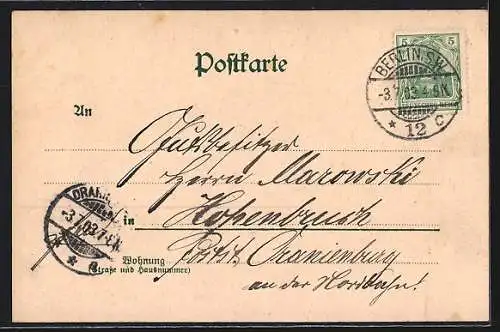 Postkarte
5 5
BERLIN S.W.
-3. 03.4-5N.
* 12 c
An
Gutsbesitzer
Herrn Marowski
in Hohenbruch
Postst. Oranienburg
an der Nordbahn!
Wohnung
(Straße und Hausnummer)
ORANI
-3. 03.7-8N.